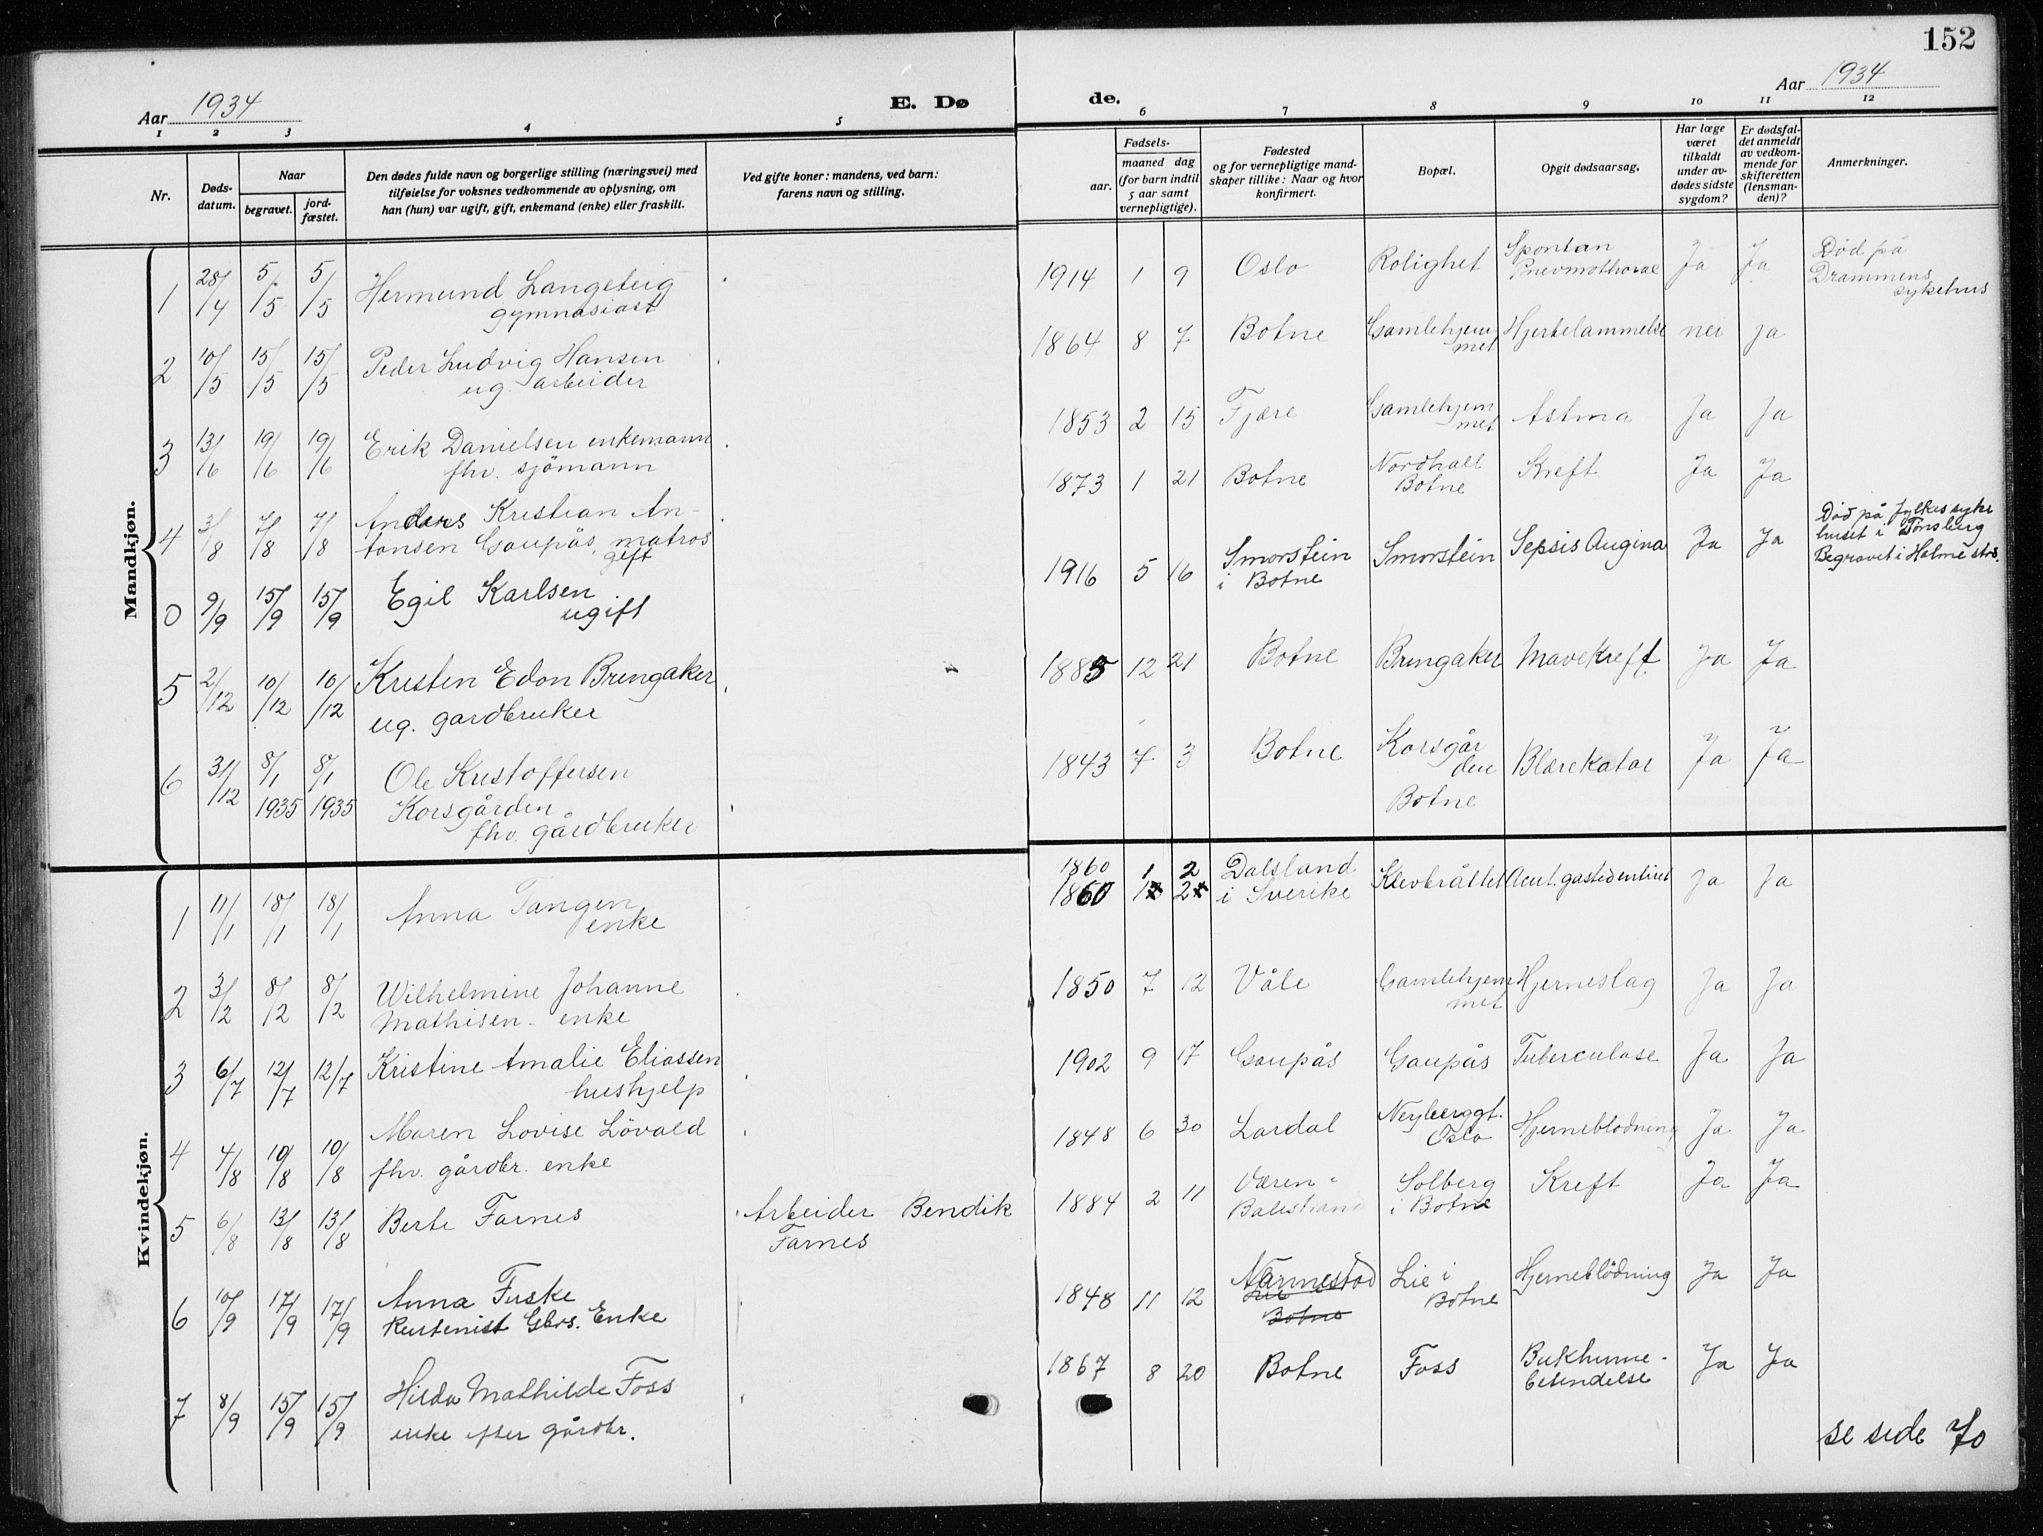 152
Aar 1934
E. Dø
de.
Aar 1934
1 2 3 4 5 6 7 8 9 10 11 12
Nr.
Døds-
datum.
Naar
begravet.
jord-
fæstet.
Den dødes fulde navn og borgerlige stilling (næringsvei) med
tilføielse for voksnes vedkommende av oplysning, om
han (hun) var ugift, gift, enkemand (enke) eller fraskilt.
Ved gifte koner: mandens, ved barn:
farens navn og stilling.
Fødsels-
aar.
maaned dag
(for barn indtil
5 aar samt
vernepligtige).
Fødested
og for vernepligtige mand-
skaper tillike: Naar og hvor
konfirmert.
Bopæl.
Opgit dødsaarsag.
Har læge
været
tilkaldt
under av-
dødes sidste
sygdom?
Er dødsfal-
det anmeldt
av vedkom-
mende for
skifteretten
(lensman-
den)?
Anmerkninger.
Mandkjøn.
1 28/4 5/5 5/5 Hermund Langeteig
gymnasiast
1914 1 9 Oslo Rolighet Spontan
Pnevmothorax Ja Ja Död på
Drammens
sykehus
2 10/5 15/5 15/5 Peder Ludvig Hansen
ug. arbeider
1864 8 7 Botne Gamlehjem
met Hjertelammelse nei ja
3 13/6 19/6 19/6 Erik Danielsen enkemann
fhv. sjömann
1853 2 15 Fjære Gamlehjem
met Astma Ja Ja
4 3/8 7/8 7/8 Anders Kristian An-
tonsen Gaupås, matros
gift
1873 1 21 Botne Nordhall
Botne Kreft Ja Ja
0 9/9 15/9 15/9 Egil Karlsen
ugift
1916 5 16 Smorstein
i Botne Smorstein Sepsis Angina Ja Ja Död på fylkessyke
huset i Tönsberg
Begravet i Holmestr.
5 2/12 10/12 10/12 Kristen Edon Bringaker
ug. gardbruker
1885 12 21 Botne Bringaker Mavekreft Ja Ja
6 31/12 8/1 8/1 Ole Kristoffersen
1935 1935 Korsgården
fhv. gårdbruker
1843 7 3 Botne Korsgår
den
Botne Blærekatar Ja Ja
Kvindekjøn.
1 11/1 18/1 18/1 Anna Tangen
enke
1860 1 2 Dalsland
1860 i Sverike Klevbråttet Acut. Ja Ja
2 3/2 8/2 8/2 Wilhelmine Johanne
Mathisen - enke
1850 7 12 Våle Gamlehjem
met Hjerneslag Ja Ja
3 6/7 12/7 12/7 Kristine Amalie Eliassen
hushjelp
1902 9 17 Gaupås Gaupås Tuberculose Ja Ja
4 4/8 10/8 10/8 Maren Lovise Lövald
fhv. gårdbr. enke
1848 6 30 Lardal Neuberggt.
Oslo Hjerneblödning Ja Ja
5 6/8 13/8 13/8 Berte Farnes
Arbeider Bendik
Farnes
1884 2 11 Væren -
Balestrand Solberg
i Botne Kreft Ja Ja
6 10/9 17/9 17/9 Anna Fuske
Enke
1848 11 12
Lie
Botne Lie i
Botne Hjerneblödning Ja Ja
7 8/9 15/9 15/9 Hilda Mathilde Foss
enke efter gårdbr.
1867 8 20 Botne Foss Bukhinne-
betendelse Ja Ja
se side 70